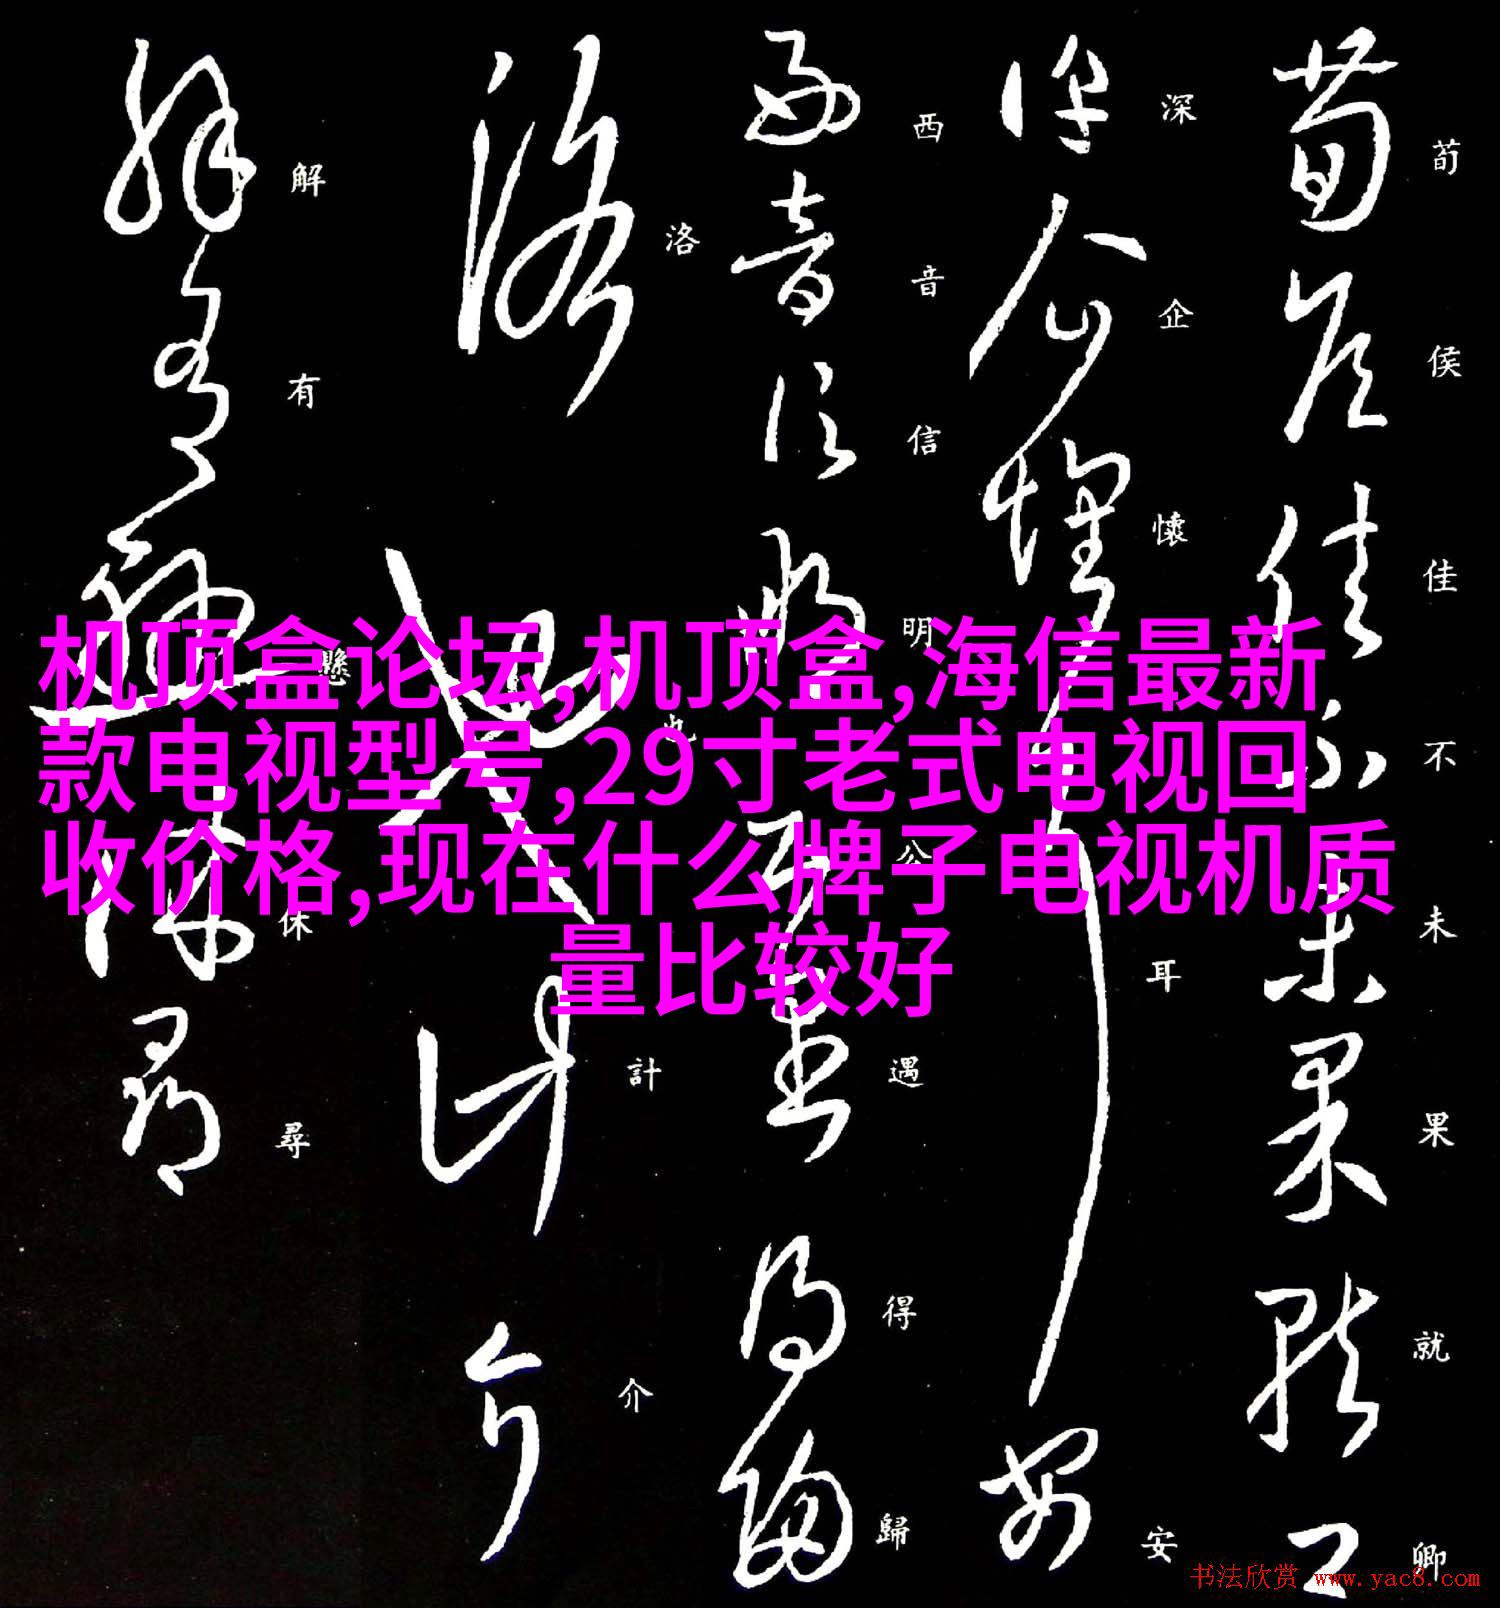 荀侯佳不未果就卿
深企懷耳安
西音信明公遇得歸
洛也計介
解有懸休尋
机顶盒论坛,机顶盒,海信最新
款电视型号,29寸老式电视回
收价格,现在什么牌子电视机质
量比较好
书法欣赏 www.yac8.com